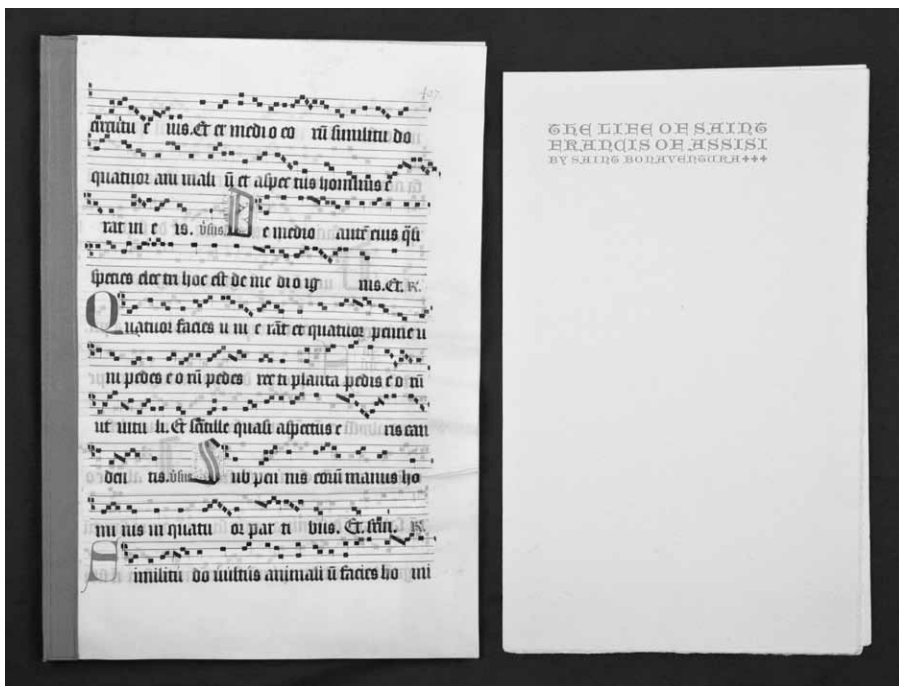 427.
circuitu e ius. Et ex medio eo rū similitu do
quatuor ani mali ū et aspec tus hominis e
rat in e is. v̉sus. D e medio autē eius q̄si
species elec tri hoc est de me dio ig nis. Et. ꝶ.
Q uatuor facies u ni e rāt et quatuor penne u
ni pedes e o rū pedes rec ti planta pedis e o rū
ut uitu li. Et scītille quasi aspectus e ris can
den tis. v̉sus S ub pen nis eorū manus ho
mi nis in quatu or par ti bus. Et. scīn. ꝶ.
S imilitu do uultus animali ū facies ho mi
THE LIFE OF SAINT
FRANCIS OF ASSISI
BY SAINT BONAVENTURA+++